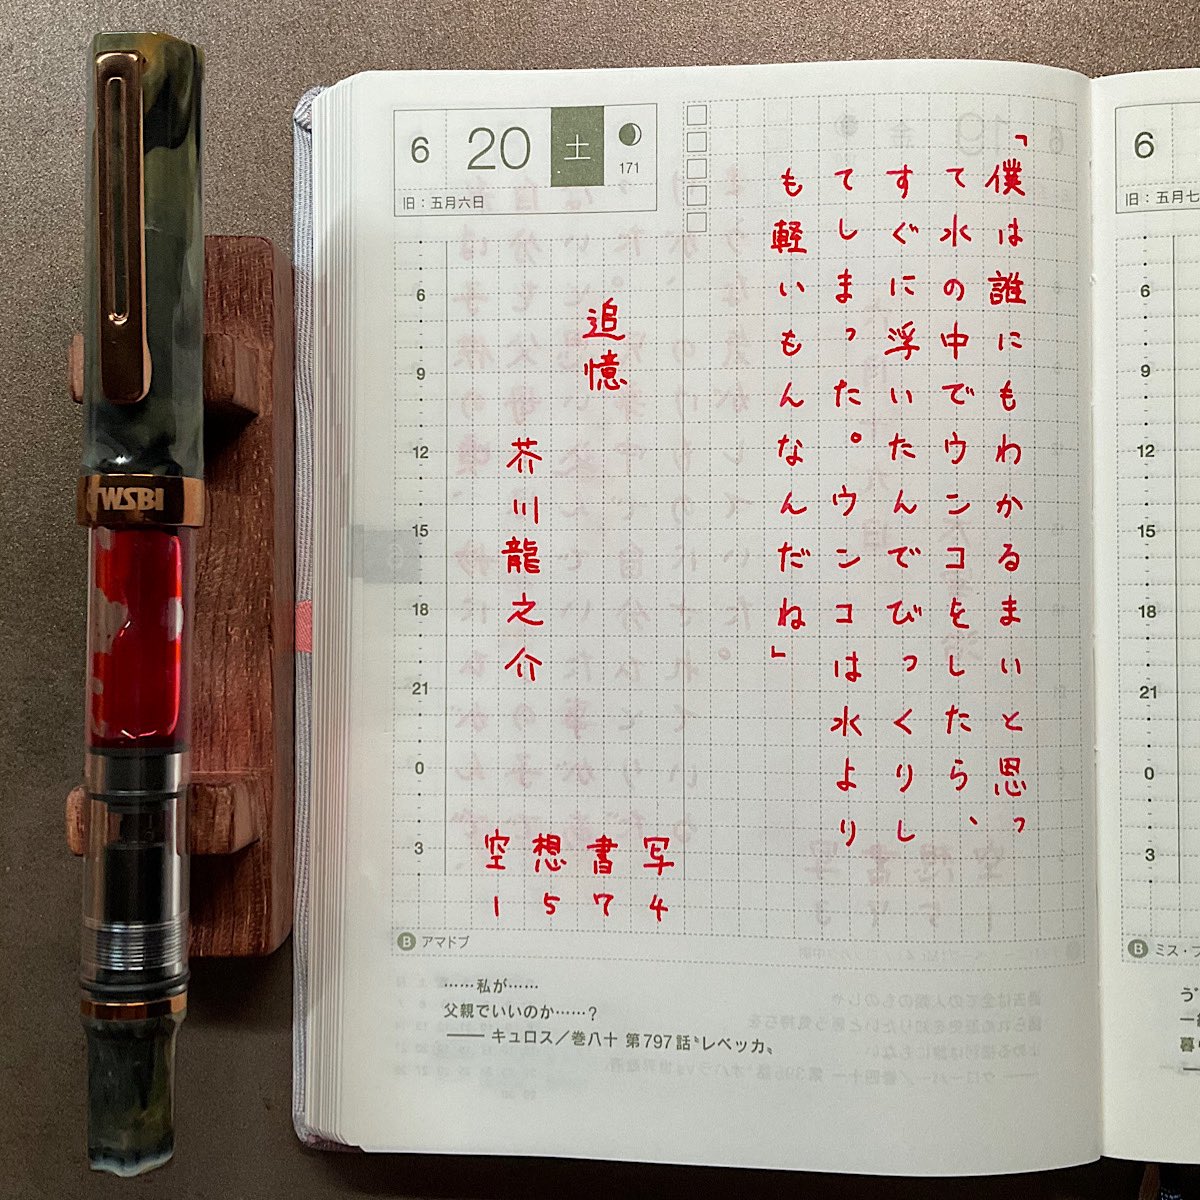 TWSBI
6 20 土
171
旧：五月六日
「僕は誰にもわかるまいと思っ
て水の中でウンコをしたら、
すぐに浮いたんでびっくりし
てしまった。ウンコは水より
も軽いもんなんだね」
追憶
芥川龍之介
空想書写
1574
6
9
12
15
18
21
0
3
B アマドブ
……私が……
父親でいいのか……？
── キュロス／巻八十 第797話〝レベッカ〟
6
旧：五月七
6
9
12
15
18
21
0
3
B ミス・
一
暮